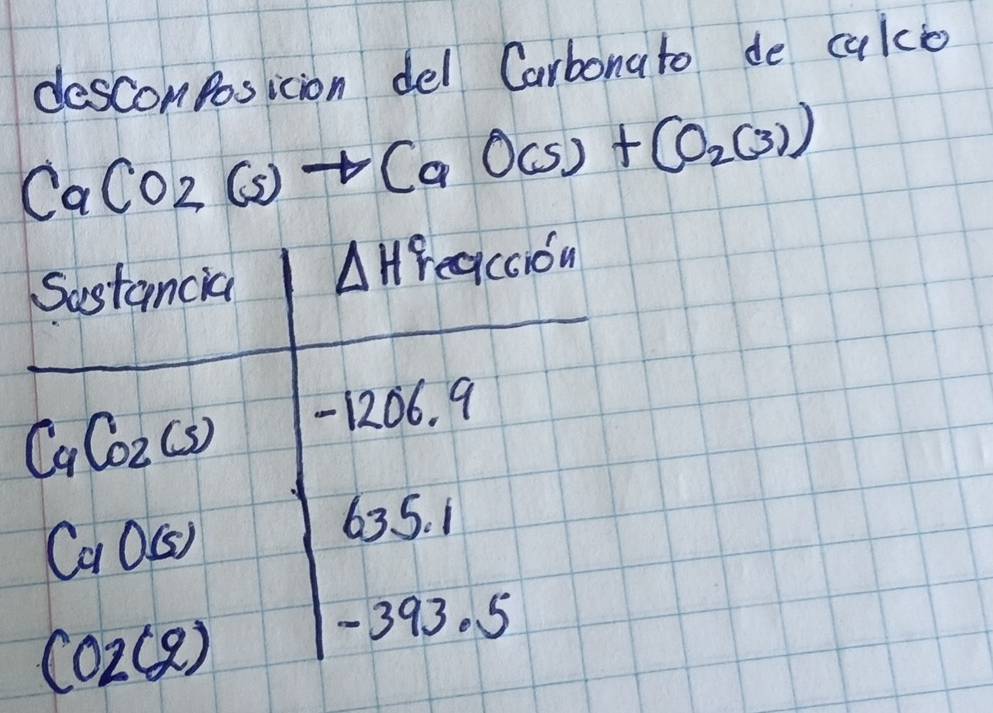 descomposicion del Carbonato de calcio
CaCO2 (s) → Ca O(s) + (O₂(3))
Sustancia | ΔH°reacción
CaCo2 (s) | -1206.9
Ca O(s) | 635.1
CO2(g) | -393.5